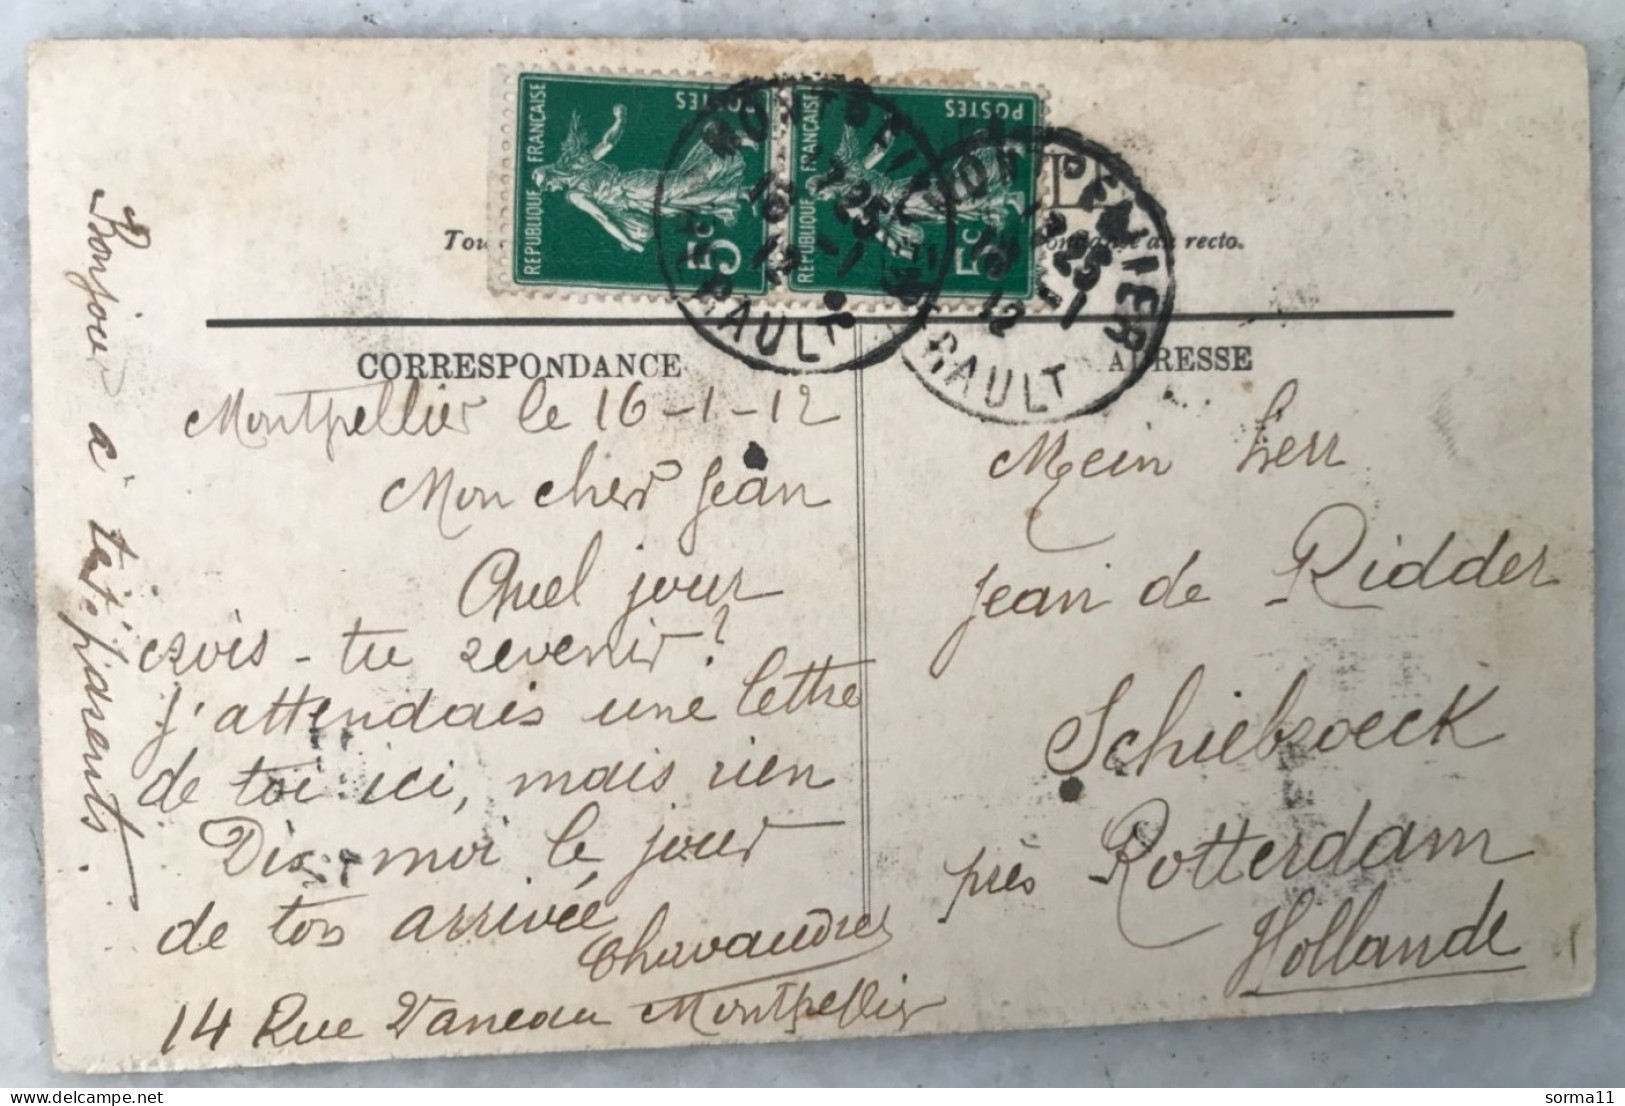 REPUBLIQUE FRANÇAISE
POSTES
5c
REPUBLIQUE FRANÇAISE
POSTES
5c
MONTPELLIER
16 - 1
12
HERAULT
MONTPELLIER
16 - 1
12
HERAULT
recto.
CORRESPONDANCE
Montpellier le 16-1-12
Mon cher Jean
Quel jour
crois-tu revenir?
J'attendais une lettre
de toi ici, mais rien
Dis-moi le jour
de ton arrivée
14 Rue Montpellier
Bonjour à tes parents.
ADRESSE
Mein herr
Jean de Ridder
Schiebroeck
près Rotterdam
Hollande
sorma11
delcampe.net